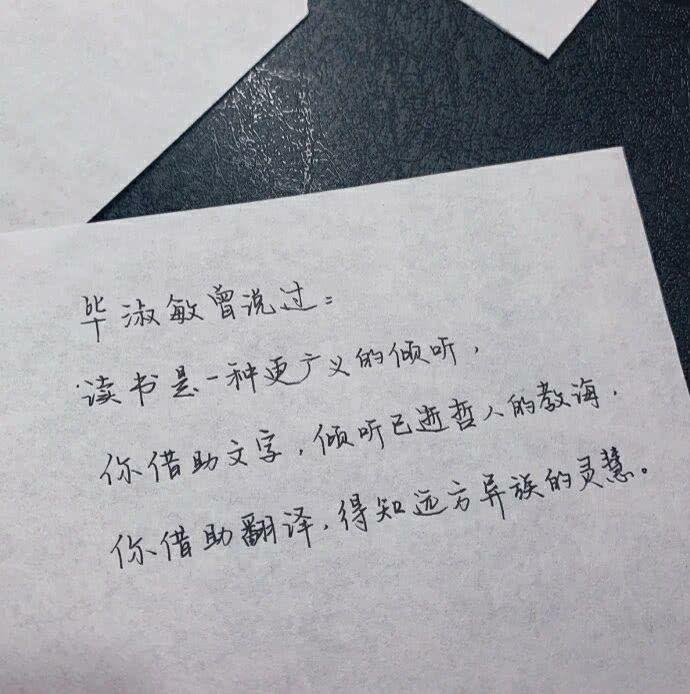 毕淑敏曾说过：
读书是一种更广义的倾听，
你借助文字，倾听已逝哲人的教诲．
你借助翻译，得知远方异族的灵慧。